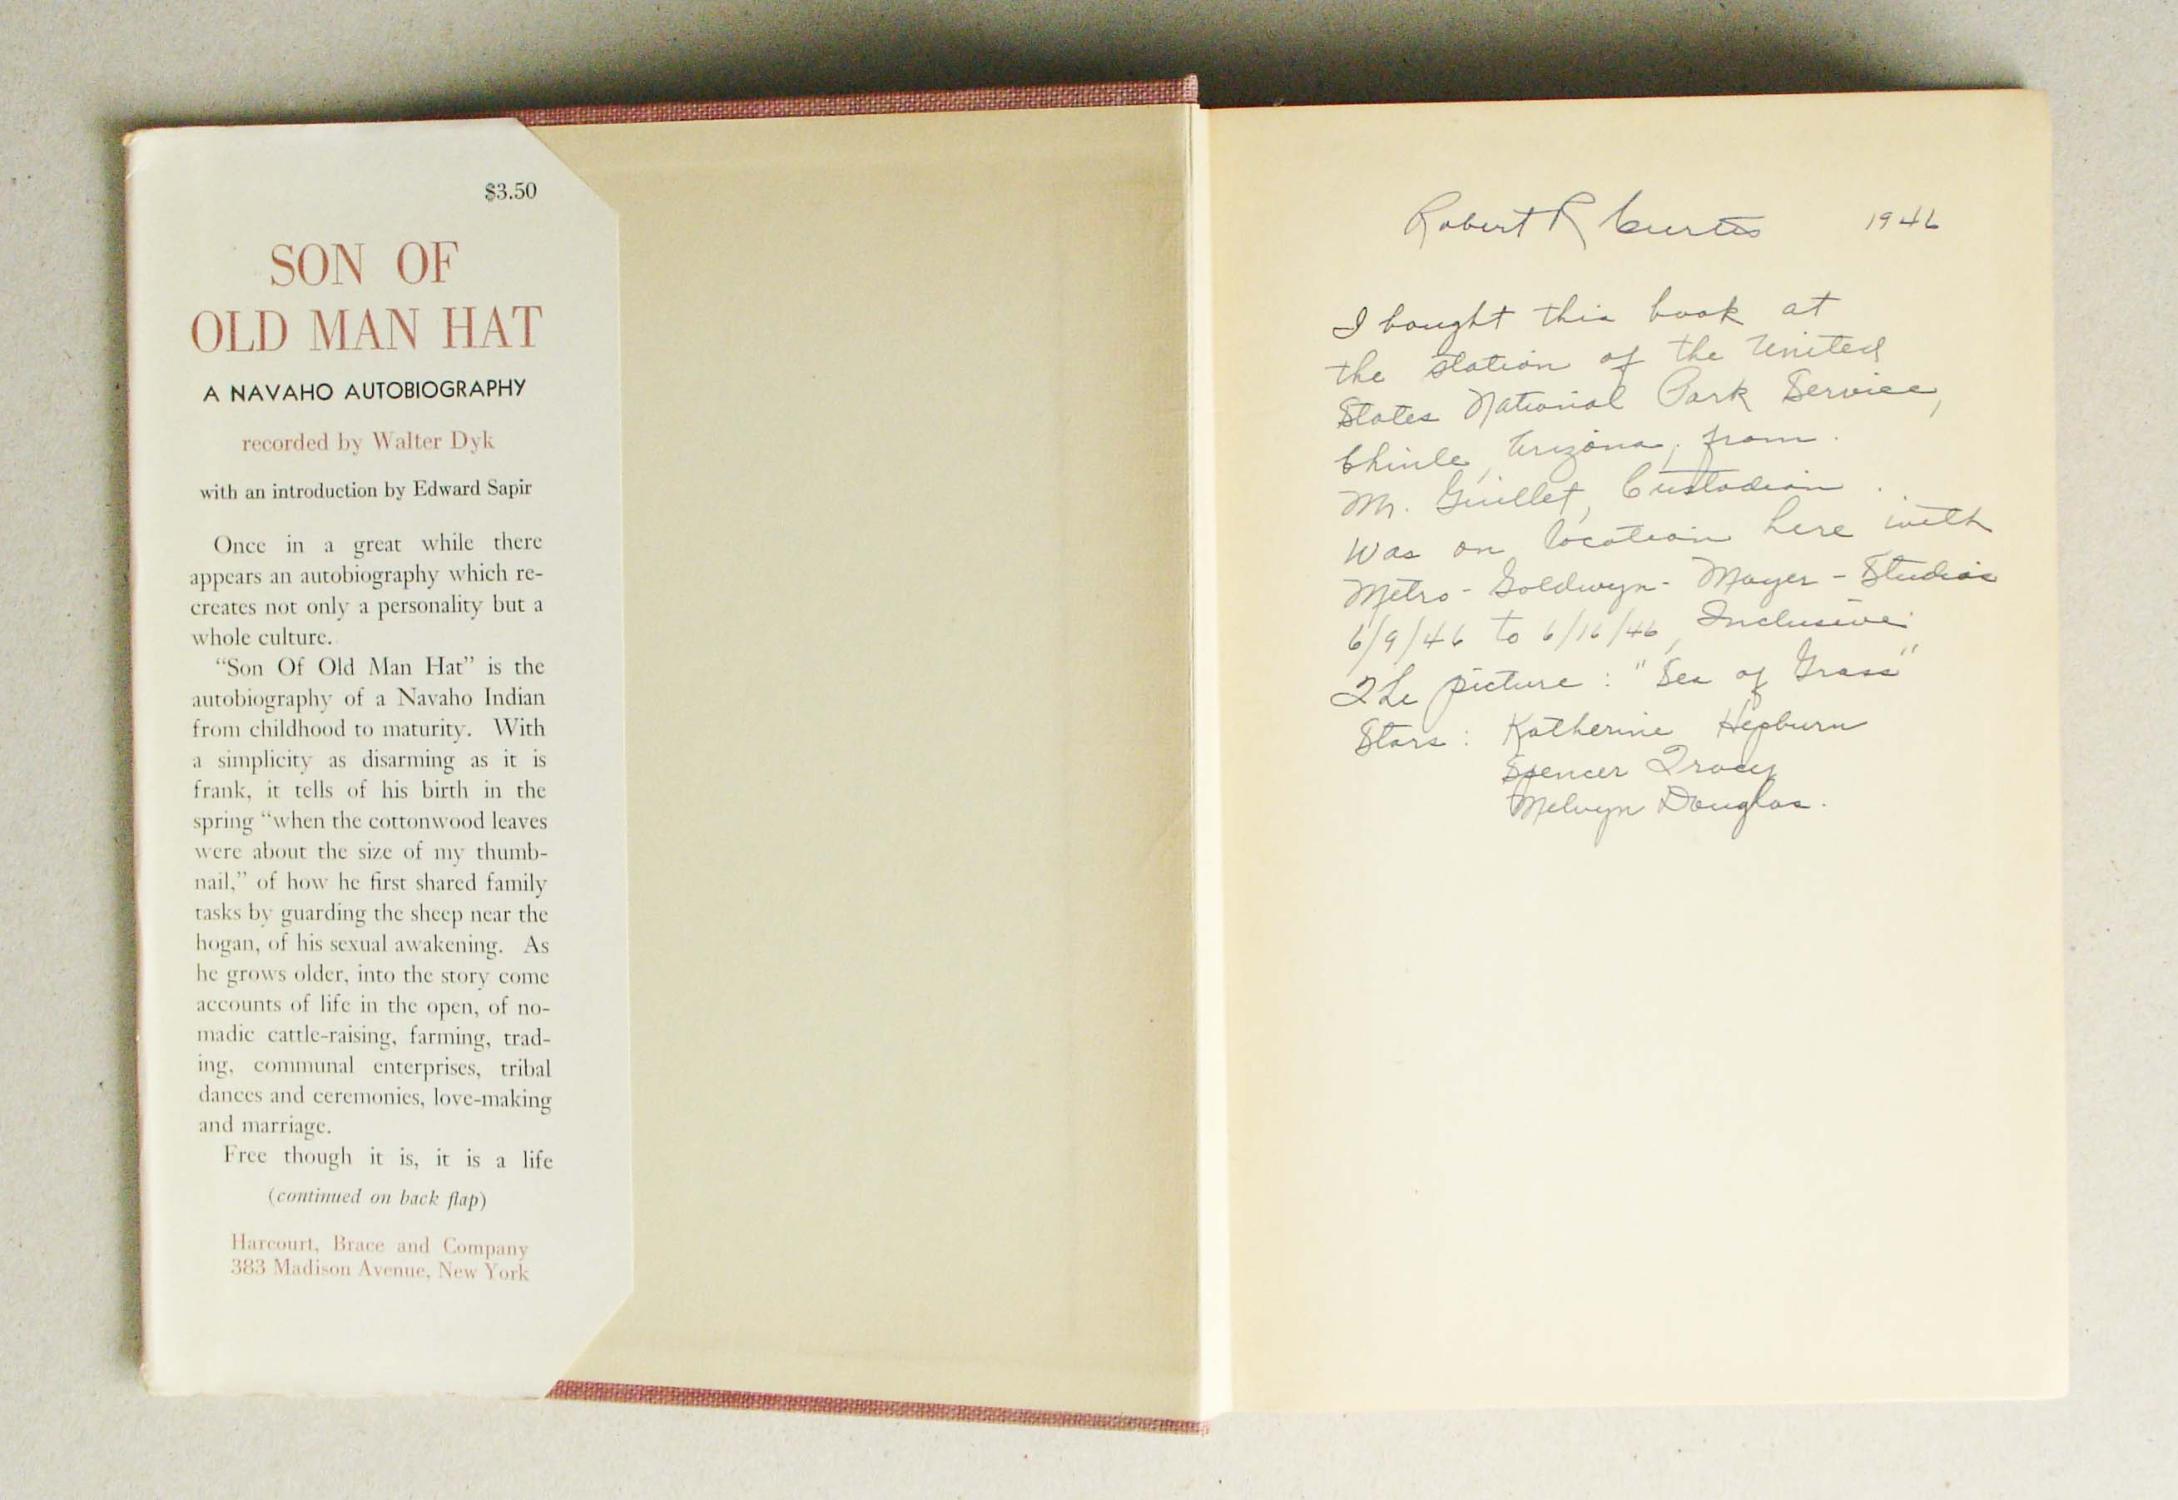 $3.50
SON OF
OLD MAN HAT
A NAVAHO AUTOBIOGRAPHY
recorded by Walter Dyk
with an introduction by Edward Sapir
Once in a great while there
appears an autobiography which re-
creates not only a personality but a
whole culture.
"Son Of Old Man Hat" is the
autobiography of a Navaho Indian
from childhood to maturity. With
a simplicity as disarming as it is
frank, it tells of his birth in the
spring "when the cottonwood leaves
were about the size of my thumb-
nail," of how he first shared family
tasks by guarding the sheep near the
hogan, of his sexual awakening. As
he grows older, into the story come
accounts of life in the open, of no-
madic cattle-raising, farming, trad-
ing, communal enterprises, tribal
dances and ceremonies, love-making
and marriage.
Free though it is, it is a life
(continued on back flap)
Harcourt, Brace and Company
383 Madison Avenue, New York
Robert R Curtis 1946
I bought this book at
the station of the United
States National Park Service,
Chinle, Arizona, from
Mr. Guillet, Custodian.
Was on location here with
Metro-Goldwyn-Mayer-Studios
6/9/46 to 6/16/46, Inclusive.
The picture: "Sea of Grass"
Stars: Katherine Hepburn
Spencer Tracy
Melvyn Douglas.